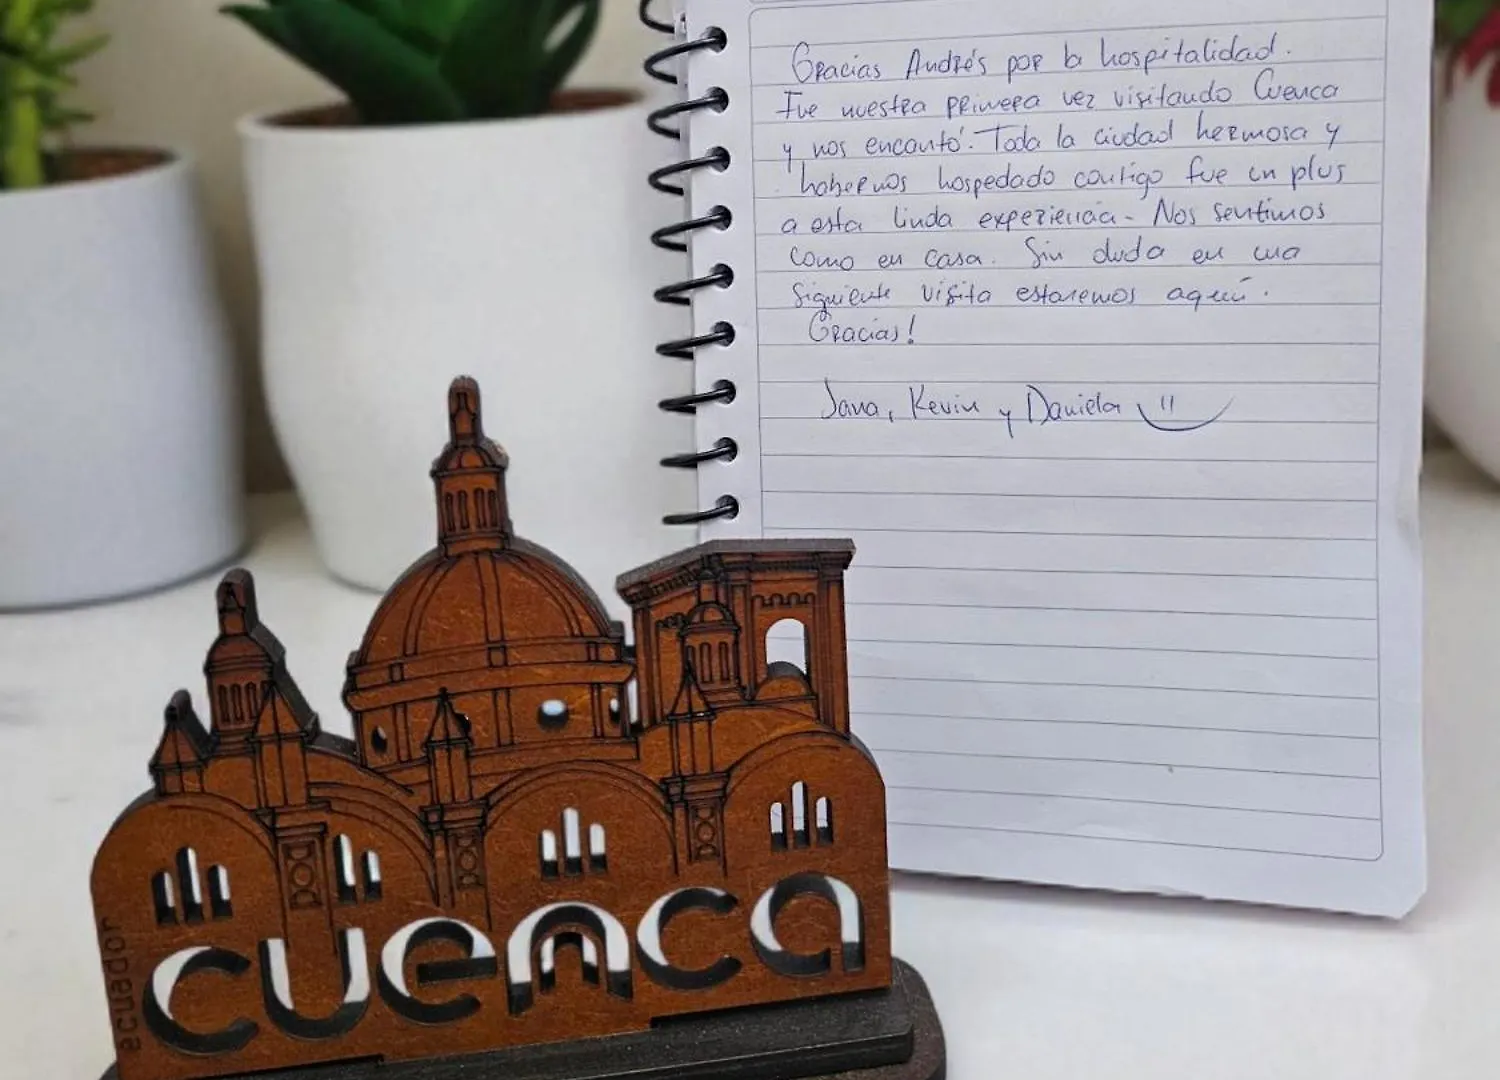 Gracias Andrés por la hospitalidad.
Fue nuestra primera vez visitando Cuenca
y nos encantó. Toda la ciudad hermosa y
habernos hospedado contigo fue un plus
a esta linda experiencia. Nos sentimos
como en casa. Sin duda en una
siguiente visita estaremos aquí.
Gracias!
Jana, Kevin y Daniela
ecuador
cuenca